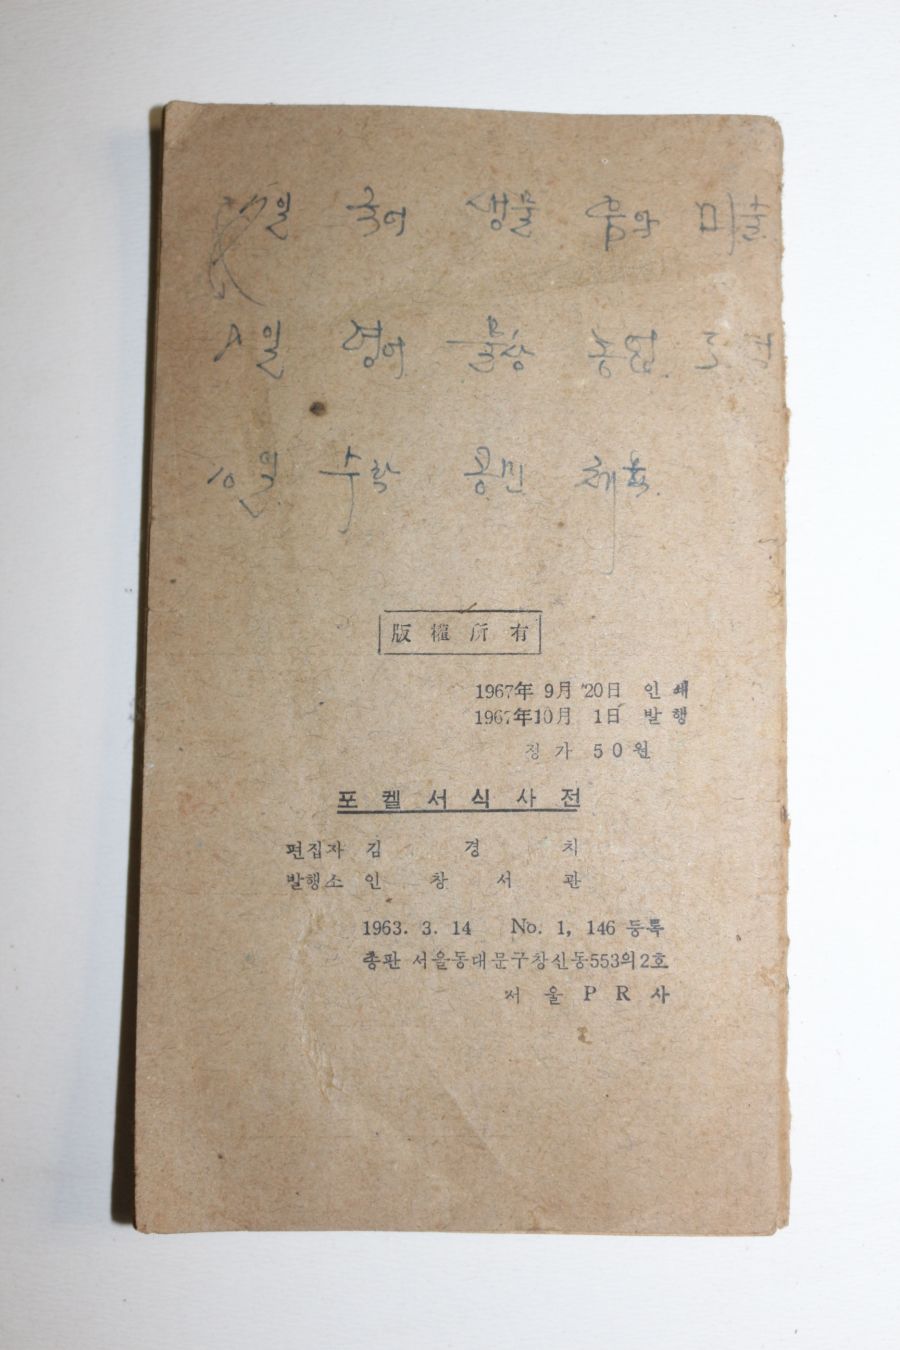 일 국어 생물 음악 미술
일 영어 물상 농업
10일 수학 공민 체육
版權所有
1967年 9月 20日 인쇄
1967年10月 1日 발행
정가 50원
포켙서식사전
편집자 김경치
발행소 인창서관
1963. 3. 14 No. 1, 146 등록
총판 서울동대문구창신동553의2호
서울PR사